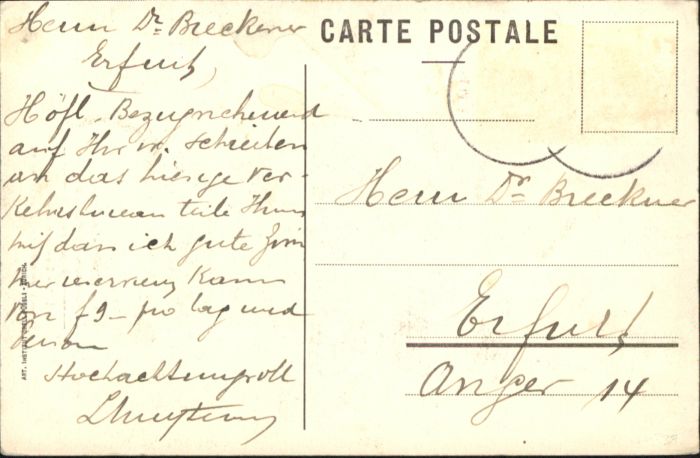 Herrn Dr Breckner
Erfurt,
Höfl. Bezugnehmend
auf Ihr w. Schreiben
an das hiesige Ver-
kehrsbureau teile Ihnen
mit dass ich gute Zim
mer reservieren kann
von f 9– pro tag und
person
Hochachtungsvoll
CARTE POSTALE
Herrn Dr Breckner
Erfurt
Anger 14
ART. INSTITUT ORELL FÜSSLI - ZÜRICH